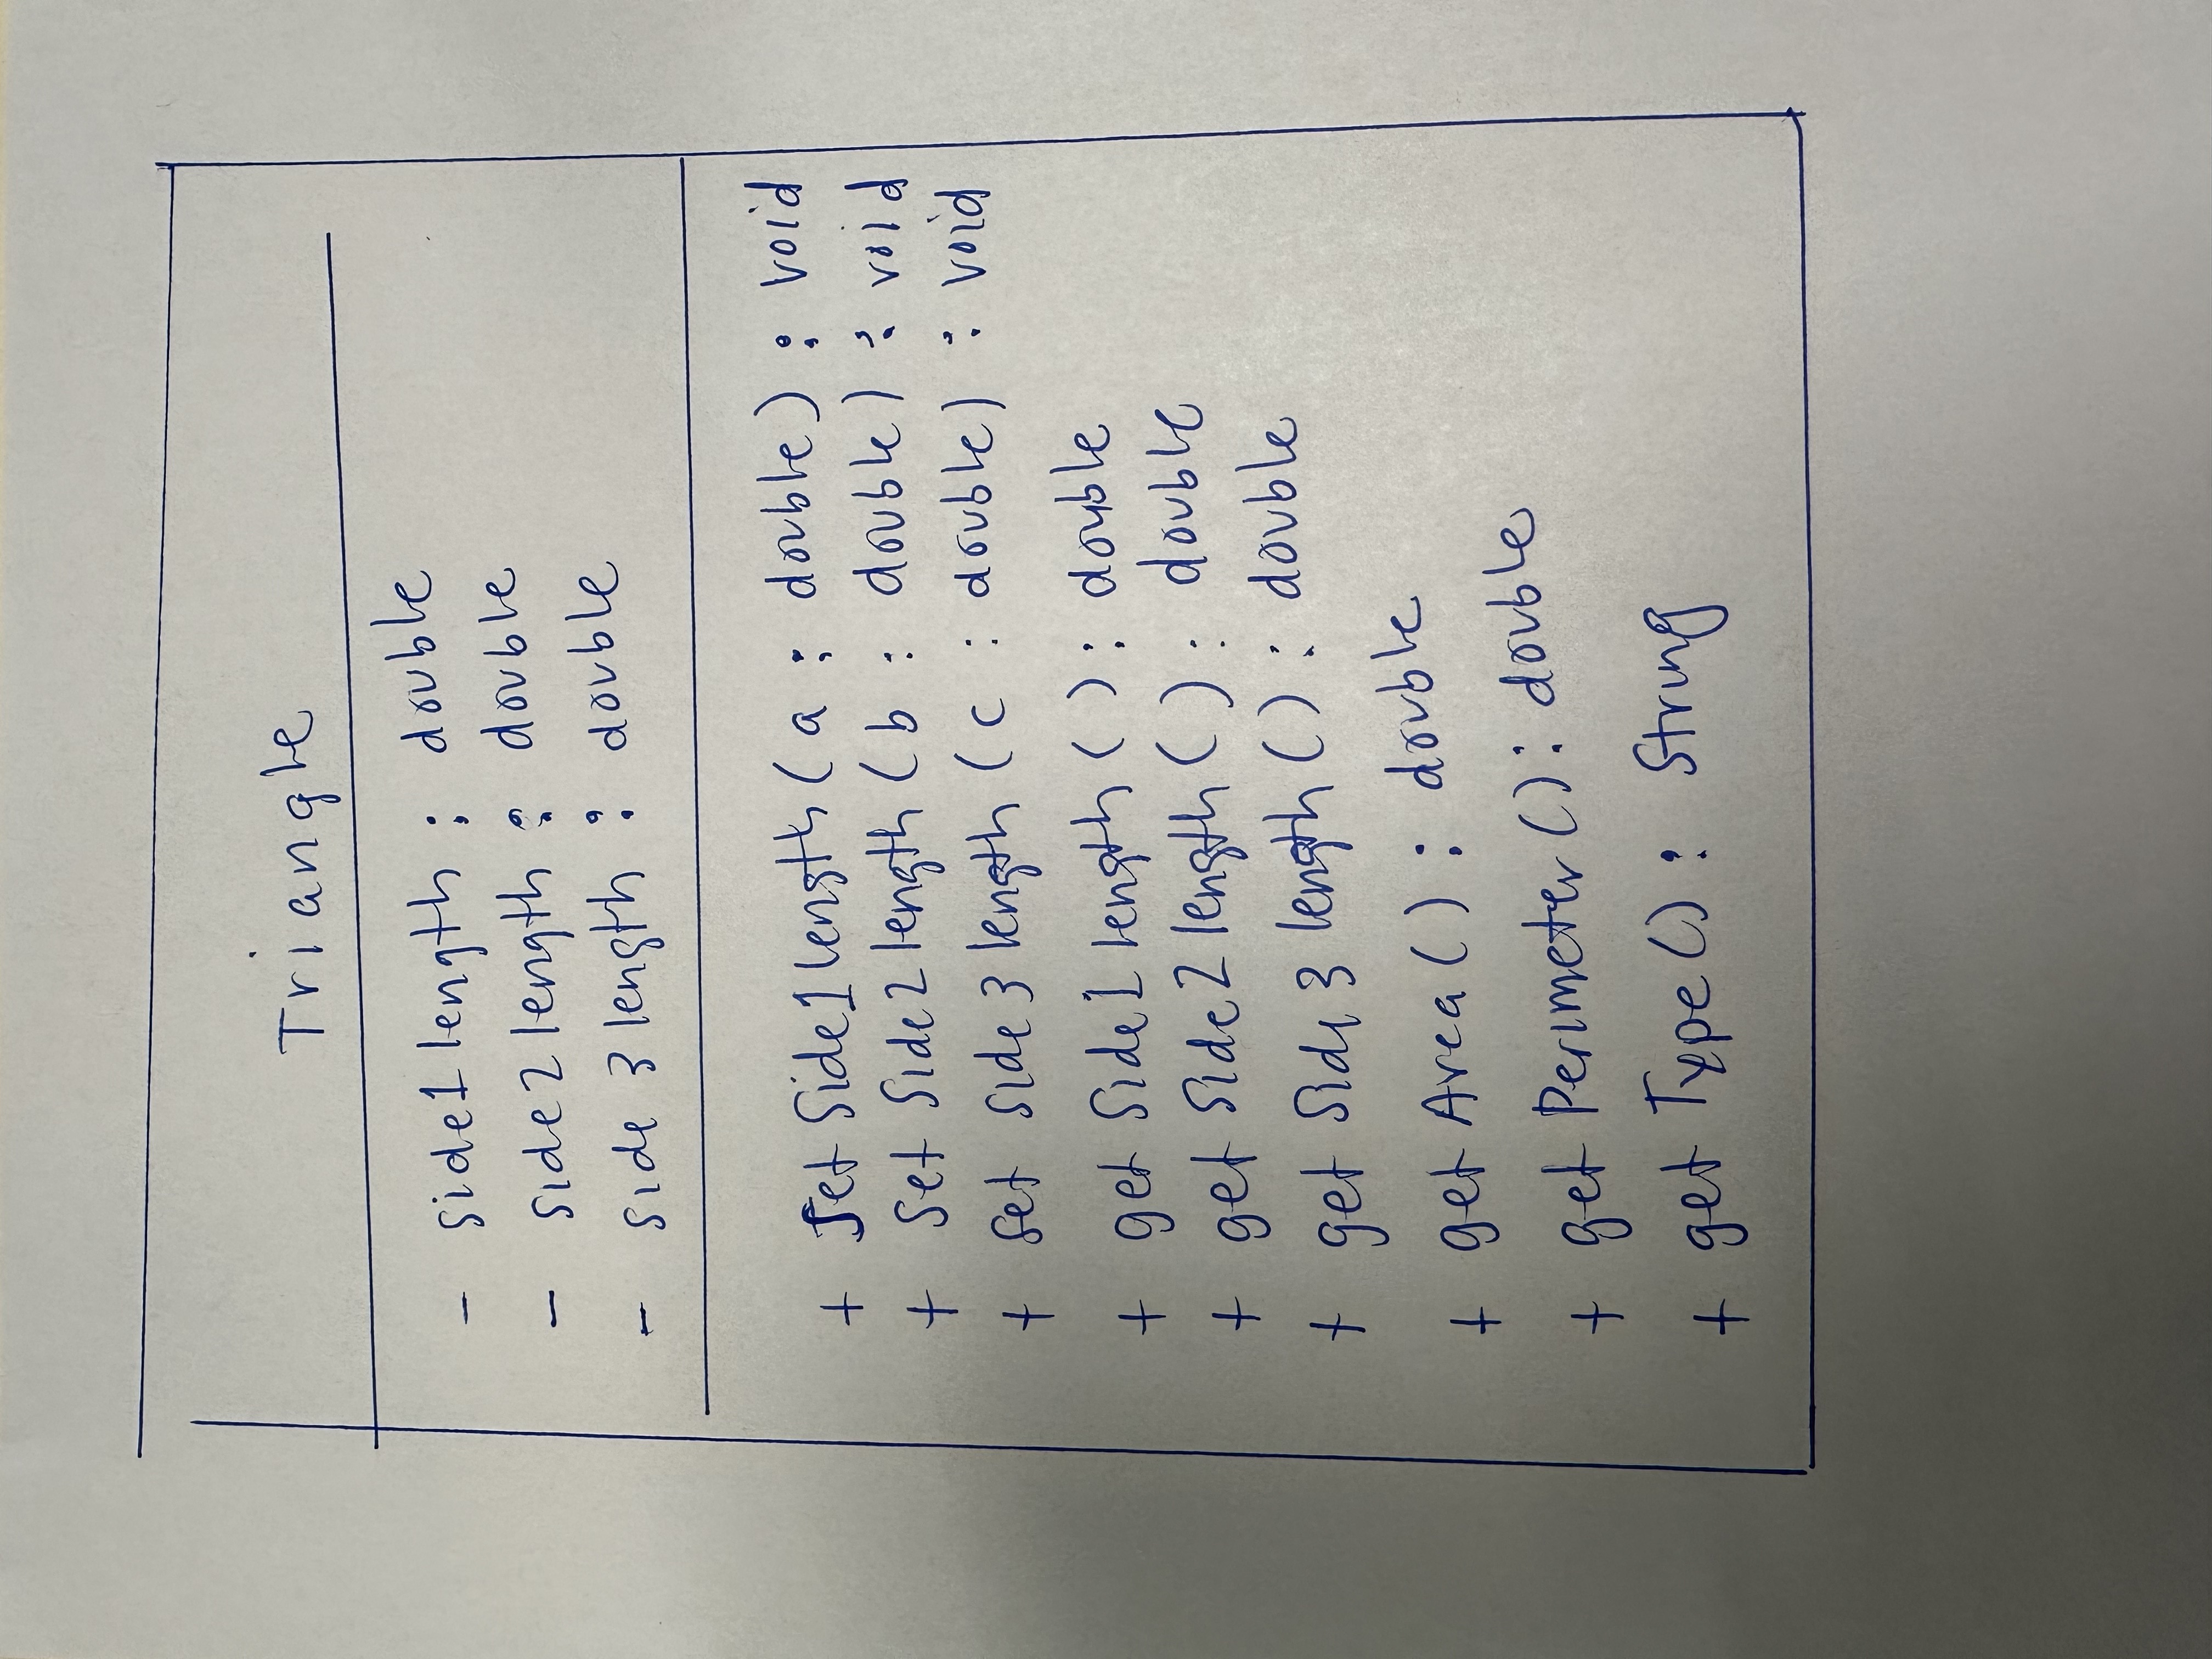 Triangle
- side1length : double
- side2length : double
- side3length : double
+ setSide1length(a : double) : void
+ setSide2length(b : double) : void
+ setside3length(c : double) : void
+ getSide1length() : double
+ getSide2length() : double
+ getSide3length() : double
+ getArea() : double
+ getPerimeter() : double
+ getType() : String